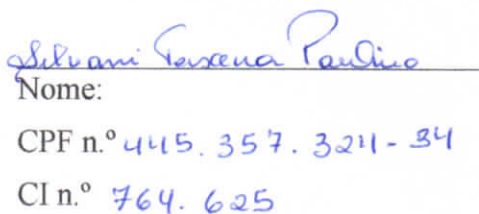 Silvani Teixeira Paulino
Nome:
CPF n.º 445.357.324-34
CI n.º 764.625